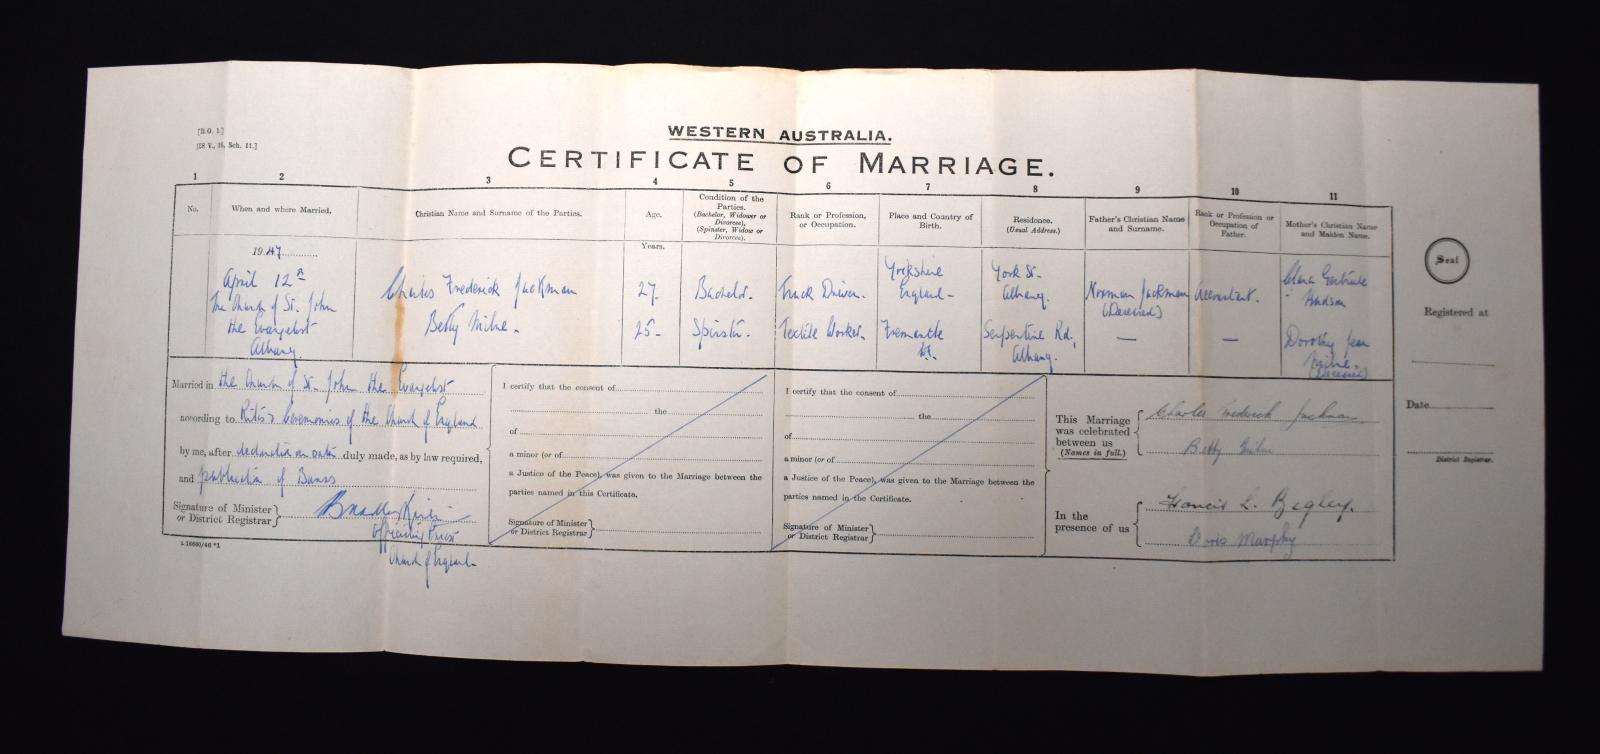 [R.G. 1.]
[58 V., 16, Sch. 11.]
WESTERN AUSTRALIA.
CERTIFICATE OF MARRIAGE.
1 2 3 4 5 6 7 8 9 10 11
No.
When and where Married.
Christian Name and Surname of the Parties.
Age.
Condition of the
Parties.
(Bachelor, Widower or
Divorcee),
(Spinster, Widow or
Divorcee).
Rank or Profession,
or Occupation.
Place and Country of
Birth.
Residence.
(Usual Address.)
Father's Christian Name
and Surname.
Rank or Profession or
Occupation of
Father.
Mother's Christian Name
and Maiden Name.
Years.
1947
April 12th
The Church of St. John
the Evangelist
Albany.
Charles Frederick Jackman
27.
Bachelor.
Truck Driver.
Yorkshire
England
York St.
Albany.
Norman Jackman
(Deceased)
Accountant.
Clara Gertrude
Hudson
Betty Milne.
25
Spinster.
Textile Worker.
Fremantle
Serpentine Rd.,
Albany.
—
—
Dorothy Jean
Milne.
(Deceased)
Married in the Church of St. John the Evangelist
according to Rites & Ceremonies of the Church of England
by me, after declaration on oath duly made, as by law required,
and publication of Banns
Signature of Minister
or District Registrar
Officiating Priest
Church of England
L 16660/46 *1
I certify that the consent of
the
of
a minor (or of
a Justice of the Peace), was given to the Marriage between the
parties named in this Certificate.
Signature of Minister
or District Registrar
I certify that the consent of
the
of
a minor (or of
a Justice of the Peace), was given to the Marriage between the
parties named in the Certificate.
Signature of Minister
or District Registrar
This Marriage
was celebrated
between us
(Names in full.)
Charles Frederick Jackman
Betty Milne
In the
presence of us
Francis L. Begley.
Doris Murphy
Seal
Registered at
Date
District Registrar.